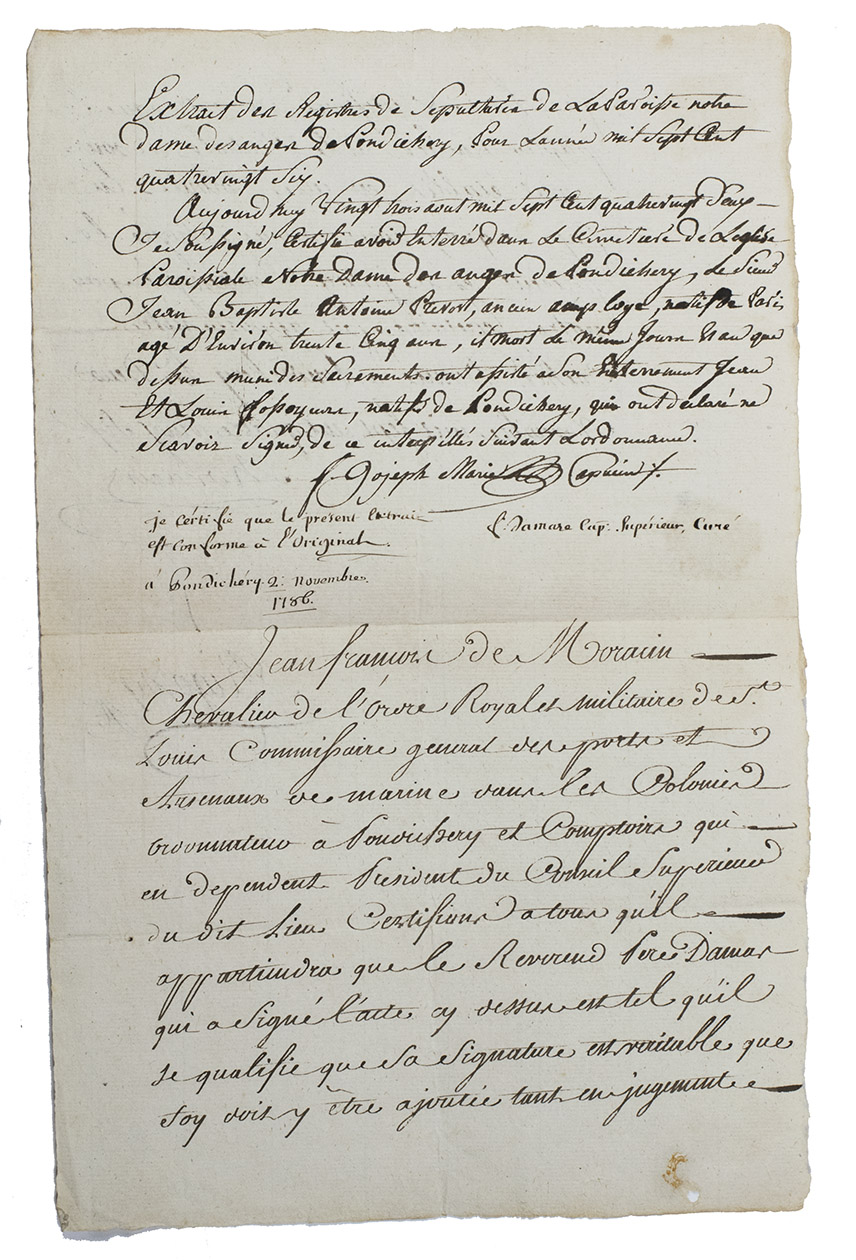 Extrait des Registres de Sepultures de La Paroisse notre
dame des anges de Pondichery, Pour L'année mil Sept Cent
quatrevingt Six.
Aujourd'huy Vingt trois aout mil Sept Cent quatrevingt Deux –
Je Soussigné, Certifie avoir Enterré dans Le Cimetiere de L'eglise
Paroissiale Notre Dame des anges de Pondichery, Le Sieur
Jean Baptiste Antoine Prevost, ancien employé, natif de Paris
agé D'Environ trente Cinq ans, il mort Le même Jour Et an que
dessus muni des Sacrements. ont assisté a Son Enterrement Jean
Et Louis fossoyeurs, natifs de Pondichery, qui ont declaré ne
Scavoir Signer, de ce interpellés Suivant Lordonnance.
f. Joseph Marie Capucin
je certifie que le present Extrait
est conforme à l'Original.
f. Damase Cap: Supérieur, Curé
à Pondichéry 2: novembre
1786.
Jean françois de Moracin
Chevalier de l'Ordre Royal et militaire de St.
Louis Commissaire general des ports et
Arsenaux de marine dans les Colonies
ordonnateur à Pondichery et Comptoirs qui
en dependent President du Conseil Superieur
du dit Lieu Certifions a tous qu'il
appartiendra que le Reverend Pere Damas
qui a Signé l'acte cy dessus est tel qu'il
se qualifie que sa signature est veritable que
foy doit y être ajoutée tant en jugement